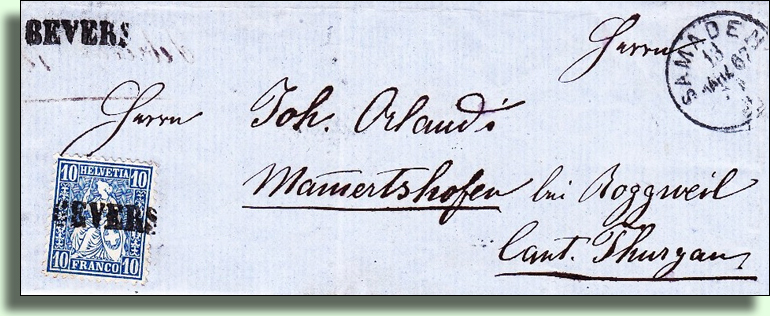 BEVERS
Herrn
SAMADEN
13
67
Herrn Joh. Orlandi
Mamertshofen bei Roggweil
Cant. Thurgau
10 HELVETIA 10
BEVERS
10 FRANCO 10